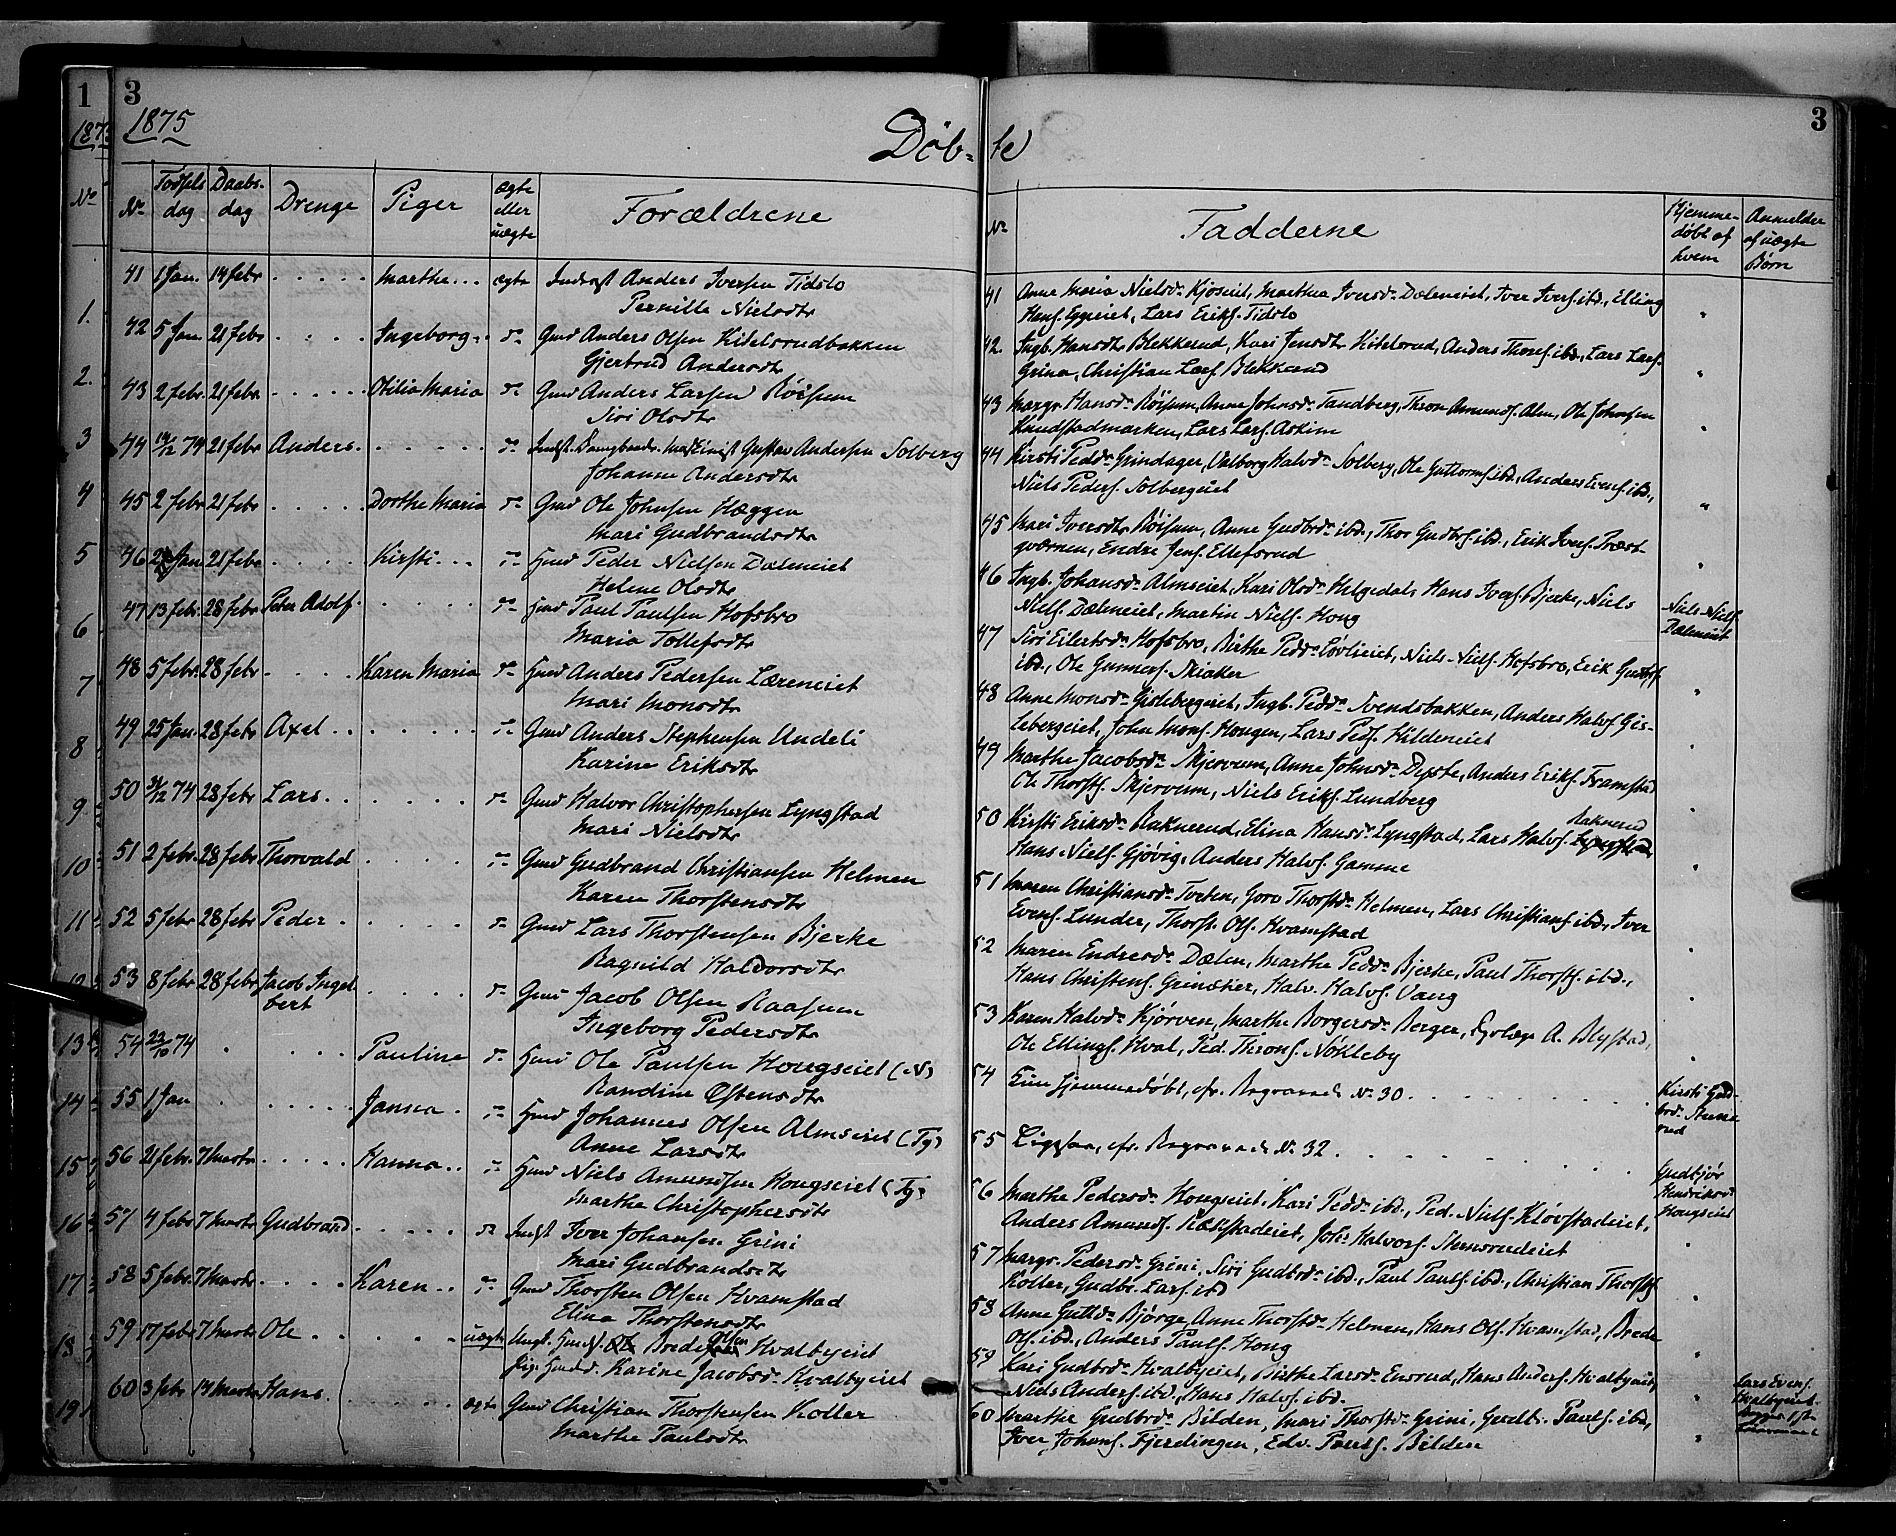 1 3
3
187
1875
Døb-
te
No
No Fødsels dag Daabs- dag Drenge Piger ægte eller uægte Forældrene
No Fadderne Hjemme- døbt af hvem Anmelder af uægte Børn
1.
2.
3
4
5
6
7
8
9
10
11
13
14
15
16
17
18
19
41 1 Jan. 14 febr . . . . . Marthe . . . ægte Inderst Anders Iversen Tidslo
Pernille Nielsdtr
42 5 Jan. 21 febr . . . . Ingeborg . . do Gmd Anders Olsen Kittelsrudbakken
Gjertrud Andersdtr
43 2 febr. 21 febr. . . . . . Otilia Maria do Gmd Anders Larsen Røisum
Siri Olsdtr
44 74 21 febr Anders . . . . . do Gustav Andersen Solberg
Johanne Andersdtr
45 2 febr 21 febr . . . . . Dorthe Maria do Gmd Ole Johnsen Hæggen
Mari Gudbrandsdtr
46 Jan 21 febr . . . . Kirsti . . . do Hmd Peder Nielsen Dæleneiet
Helene Olsdtr
47 13 febr. 28 febr Peter Adolf . . . . . do Hmd Paul Paulsen Hofsbro
Maria Tollefsdtr
48 5 febr. 28 febr . . . . Karen Maria do Hmd Anders Pedersen Læreneiet
Mari Monsdtr
49 25 Jan 28 febr Axel . . . . . . . do Gmd Anders Stephensen Undeli
Karine Eriksdtr
50 31/12 74 28 febr Lars . . . . . . . do Gmd Halvor Christophersen Lyngstad
Mari Nielsdtr
51 2 febr. 28 febr Thorvald . . . . do Gmd Gudbrand Christiansen Helmen
Karen Thorstensdtr
52 5 febr 28 febr Peder . . . . . do Gmd Lars Thorstensen Bjerke
Ragnild Haldorsdtr
53 8 febr 28 febr Jacob Ingel-
bert . . . . do Gmd Jacob Olsen Raasum
Ingeborg Pedersdtr
54 74 . . . . Pauline do Hmd Ole Paulsen Hougseiet (N)
Randine Østensdtr
55 1 Jan . . . . . . Janna . do Hmd Johannes Olsen Almseiet (Tg)
Anne Larsdtr
56 21 febr. 7 Marts . . . . . Hanna . . do Hmd Niels Amundsen Hougseiet (Tg)
Marthe Christophersdtr
57 4 febr 7 Marts Gudbrand . . . . . do Indst Iver Johansen Grini
Mari Gudbrandsdtr
58 5 febr. 7 Marts . . . . . Karen . . do Gmd Thorsten Olsen Kvamstad
Eline Thorstensdtr
59 17 febr 7 Marts Ole . . . . . . uægte Brede Olsen Hvalbyeiet
Pige Karine Jacobsdr Hvalbyeiet
60 3 febr 14 Marts Hans . . . . . . ægte Gmd Christian Thorstensen Koller
Marthe Paulsdtr
41 Anne Maria Nielsdr Kjoseiet, Marthea Iversdr Dæleneiet, Iver Ivers. ibd., Elling
Hans. Eggeeiet, Lars Eriks. Tidslo
42. Ingb. Hansdtr Blekkerud, Kari Jensdtr Kittelsrud, Anders Throns. ibd., Lars Lars.
Grina, Christian Lars. Blekkerud
43 Margr. Hansdr Røisum, Anne Johnsdr Tandberg, Thron Amunds. Alm, Ole Johnsen
Kundstadmarken, Lars Lars. Askim
44 Kirsti Pedsdr Grindager, Valborg Halvdr Solberg, Ole Guttorms. ibd., Anders Evens. ibd.,
Niels Peders. Solbergeiet
45 Mari Iversdtr Røisum, Anne Gudbrdr ibd., Thor Gudbrs. ibd., Erik Ivers. Præst-
qværnen, Endre Jens. Ellefsrud
46 Ingb. Johansdr Almseiet, Kari Olsdr Helgedal, Hans Ivers. Bjerke, Niels
Niels. Dæleneiet, Martin Niels. Houg
Niels Niels.
Dæleneiet
47 Siri Eilertsdr Hofsbro, Birthe Pedsdr Løvlieiet, Niels Niels. Hofsbro, Erik
ibd., Ole Gunners. Skiaker
48 Anne Monsdr Gislebergeiet, Ingb. Pedsdr Svendsbakken, Anders Halvs. Gis-
lebergeiet, John Mons. Hougen, Lars Peds. Hildeneiet
49 Marthe Jacobsdr Skjervum, Anne Johnsdr Dyste, Anders Eriks. Framstad
Ole Thorsts. Skjervum, Niels Eriks. Lundberg
50 Kirsti Eriksdr Raknerud, Elina Hansdr Lyngstad, Lars Halvs. Lyngstad, Raknerud
Hans Niels. Gjøvig, Anders Halvs. Gamme
51 Maren Christiansdr Tveten, Goro Thorstdr Helmen, Lars Christians. ibd., Iver
Evens. Lunder, Thorst. Ols. Kvamstad
52 Maren Endresdr Dælen, Marthe Pedsdr Bjerke, Paul Thorsts. ibd.,
Hans Christens. Grinæier, Halv. Halvs. Vang
53 Karen Halvdr Kjørven, Marthe Borgersdr Berger, A. Blystad,
Ole Ellings. Hval, Ped. Throns. Nøkleby
54 Kun hjemmedøbt, cfr. Begravede No 30 . . . . . . .
Kirsti Gud-
brdr
rud
55 cfr. Begravede No 32 . . . . . . .
Gudbjør
Henriksdr
Hougseiet
56 Marthe Pedersdr Hougseiet, Kari Pedsdr ibd., Ped. Niels. Kløvstadeiet,
Anders Amunds. Joh. Halvors. Stensrudeiet
57 Margr. Pedersdr Grini, Siri Gudbrdr ibd., Paul Pauls. ibd., Christian Thorsts.
Koller, Gudbr. Lars. ibd
58 Anne Guttdr Bjørge, Anne Thorstdr Helmen, Hans Ols. Kvamstad, Brede
Ols. ibd., Anders Pauls. Houg
59 Kari Gudbrdr Hvalbyeiet, Birthe Larsdr Ensrud, Hans Anders. Hvalbyeiet,
Niels Anders. ibd., Hans Halvs. ibd.
Lars Evens.
Hvalbyeiet
60 Marthe Gudbrdr Bilden, Mari Thorstdr Grini, Gudb. Pauls. ibd.,
Iver Johans. Fjerdingen, Edv. Pauls. Bilden